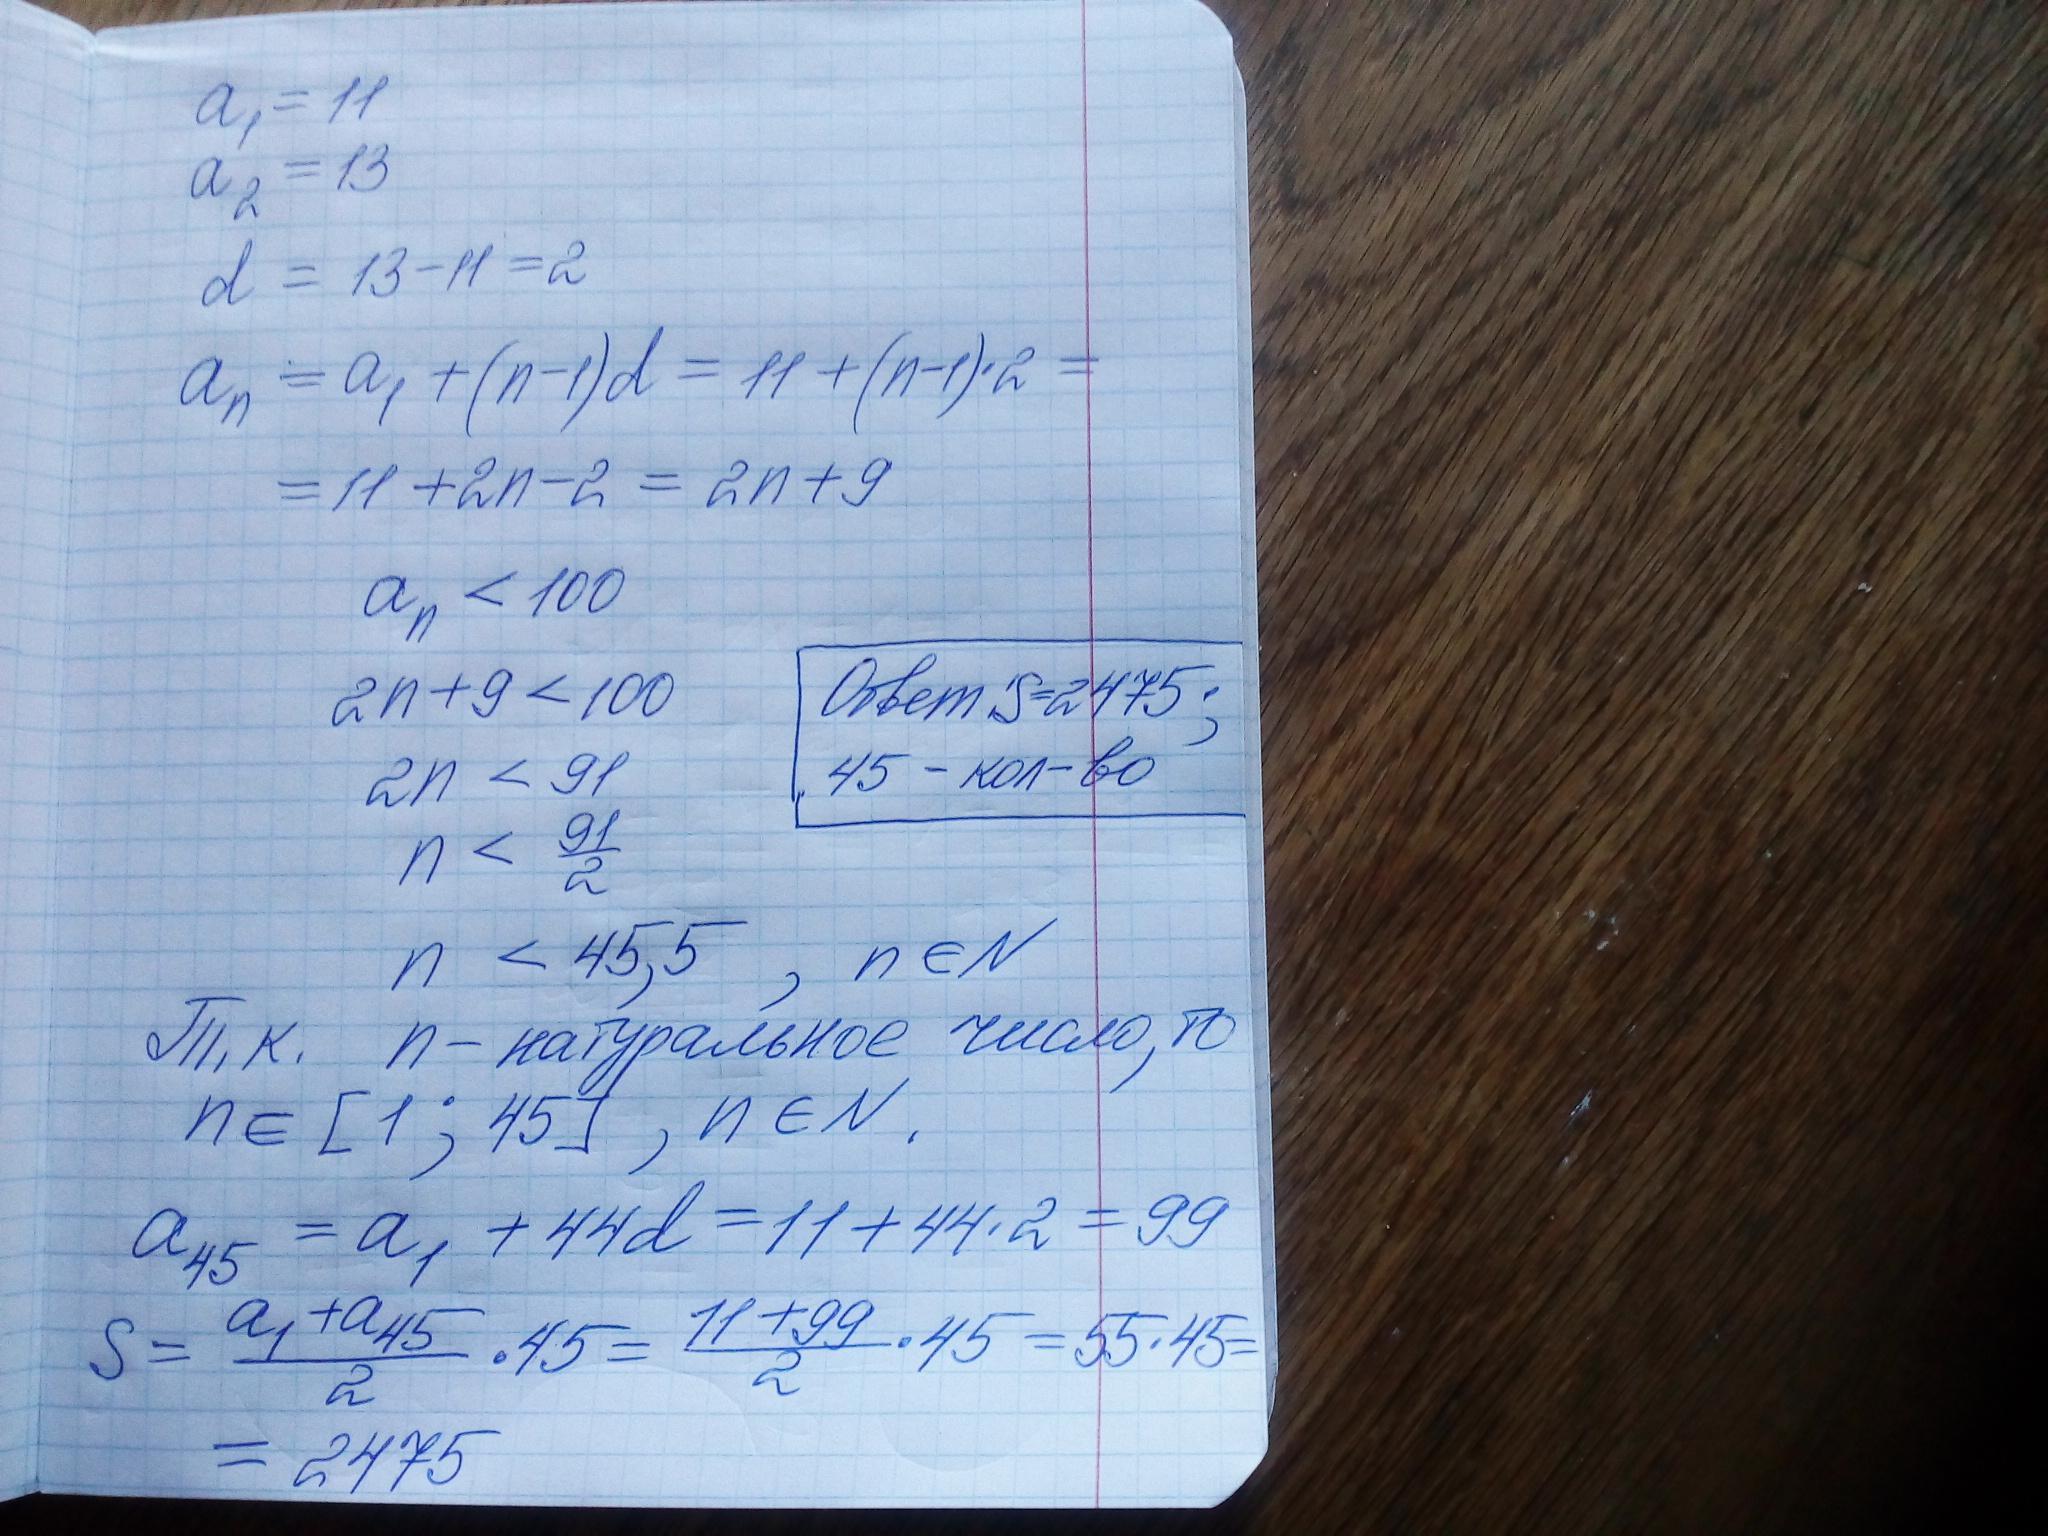 a₁ = 11
a₂ = 13
d = 13 - 11 = 2
aₙ = a₁ + (n-1)d = 11 + (n-1)·2 =
= 11 + 2n - 2 = 2n + 9
aₙ < 100
2n + 9 < 100
2n < 91
n < 91/2
Ответ: S=2475;
45 - кол-во
n < 45,5 , n ∈ N
Т.к. n - натуральное число, то
n ∈ [1; 45], n ∈ N.
a₄₅ = a₁ + 44d = 11 + 44·2 = 99
S = (a₁ + a₄₅)/2 · 45 = (11 + 99)/2 · 45 = 55·45 =
= 2475